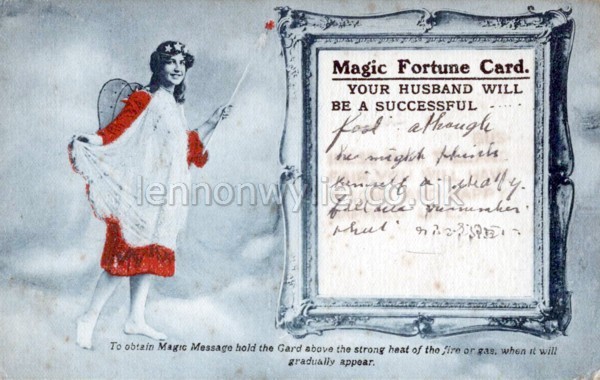 Magic Fortune Card.
YOUR HUSBAND WILL
BE A SUCCESSFUL
fool although
he might think
himself a
remember
lennonwylie.co.uk
To obtain Magic Message hold the Card above the strong heat of the fire or gas, when it will
gradually appear.